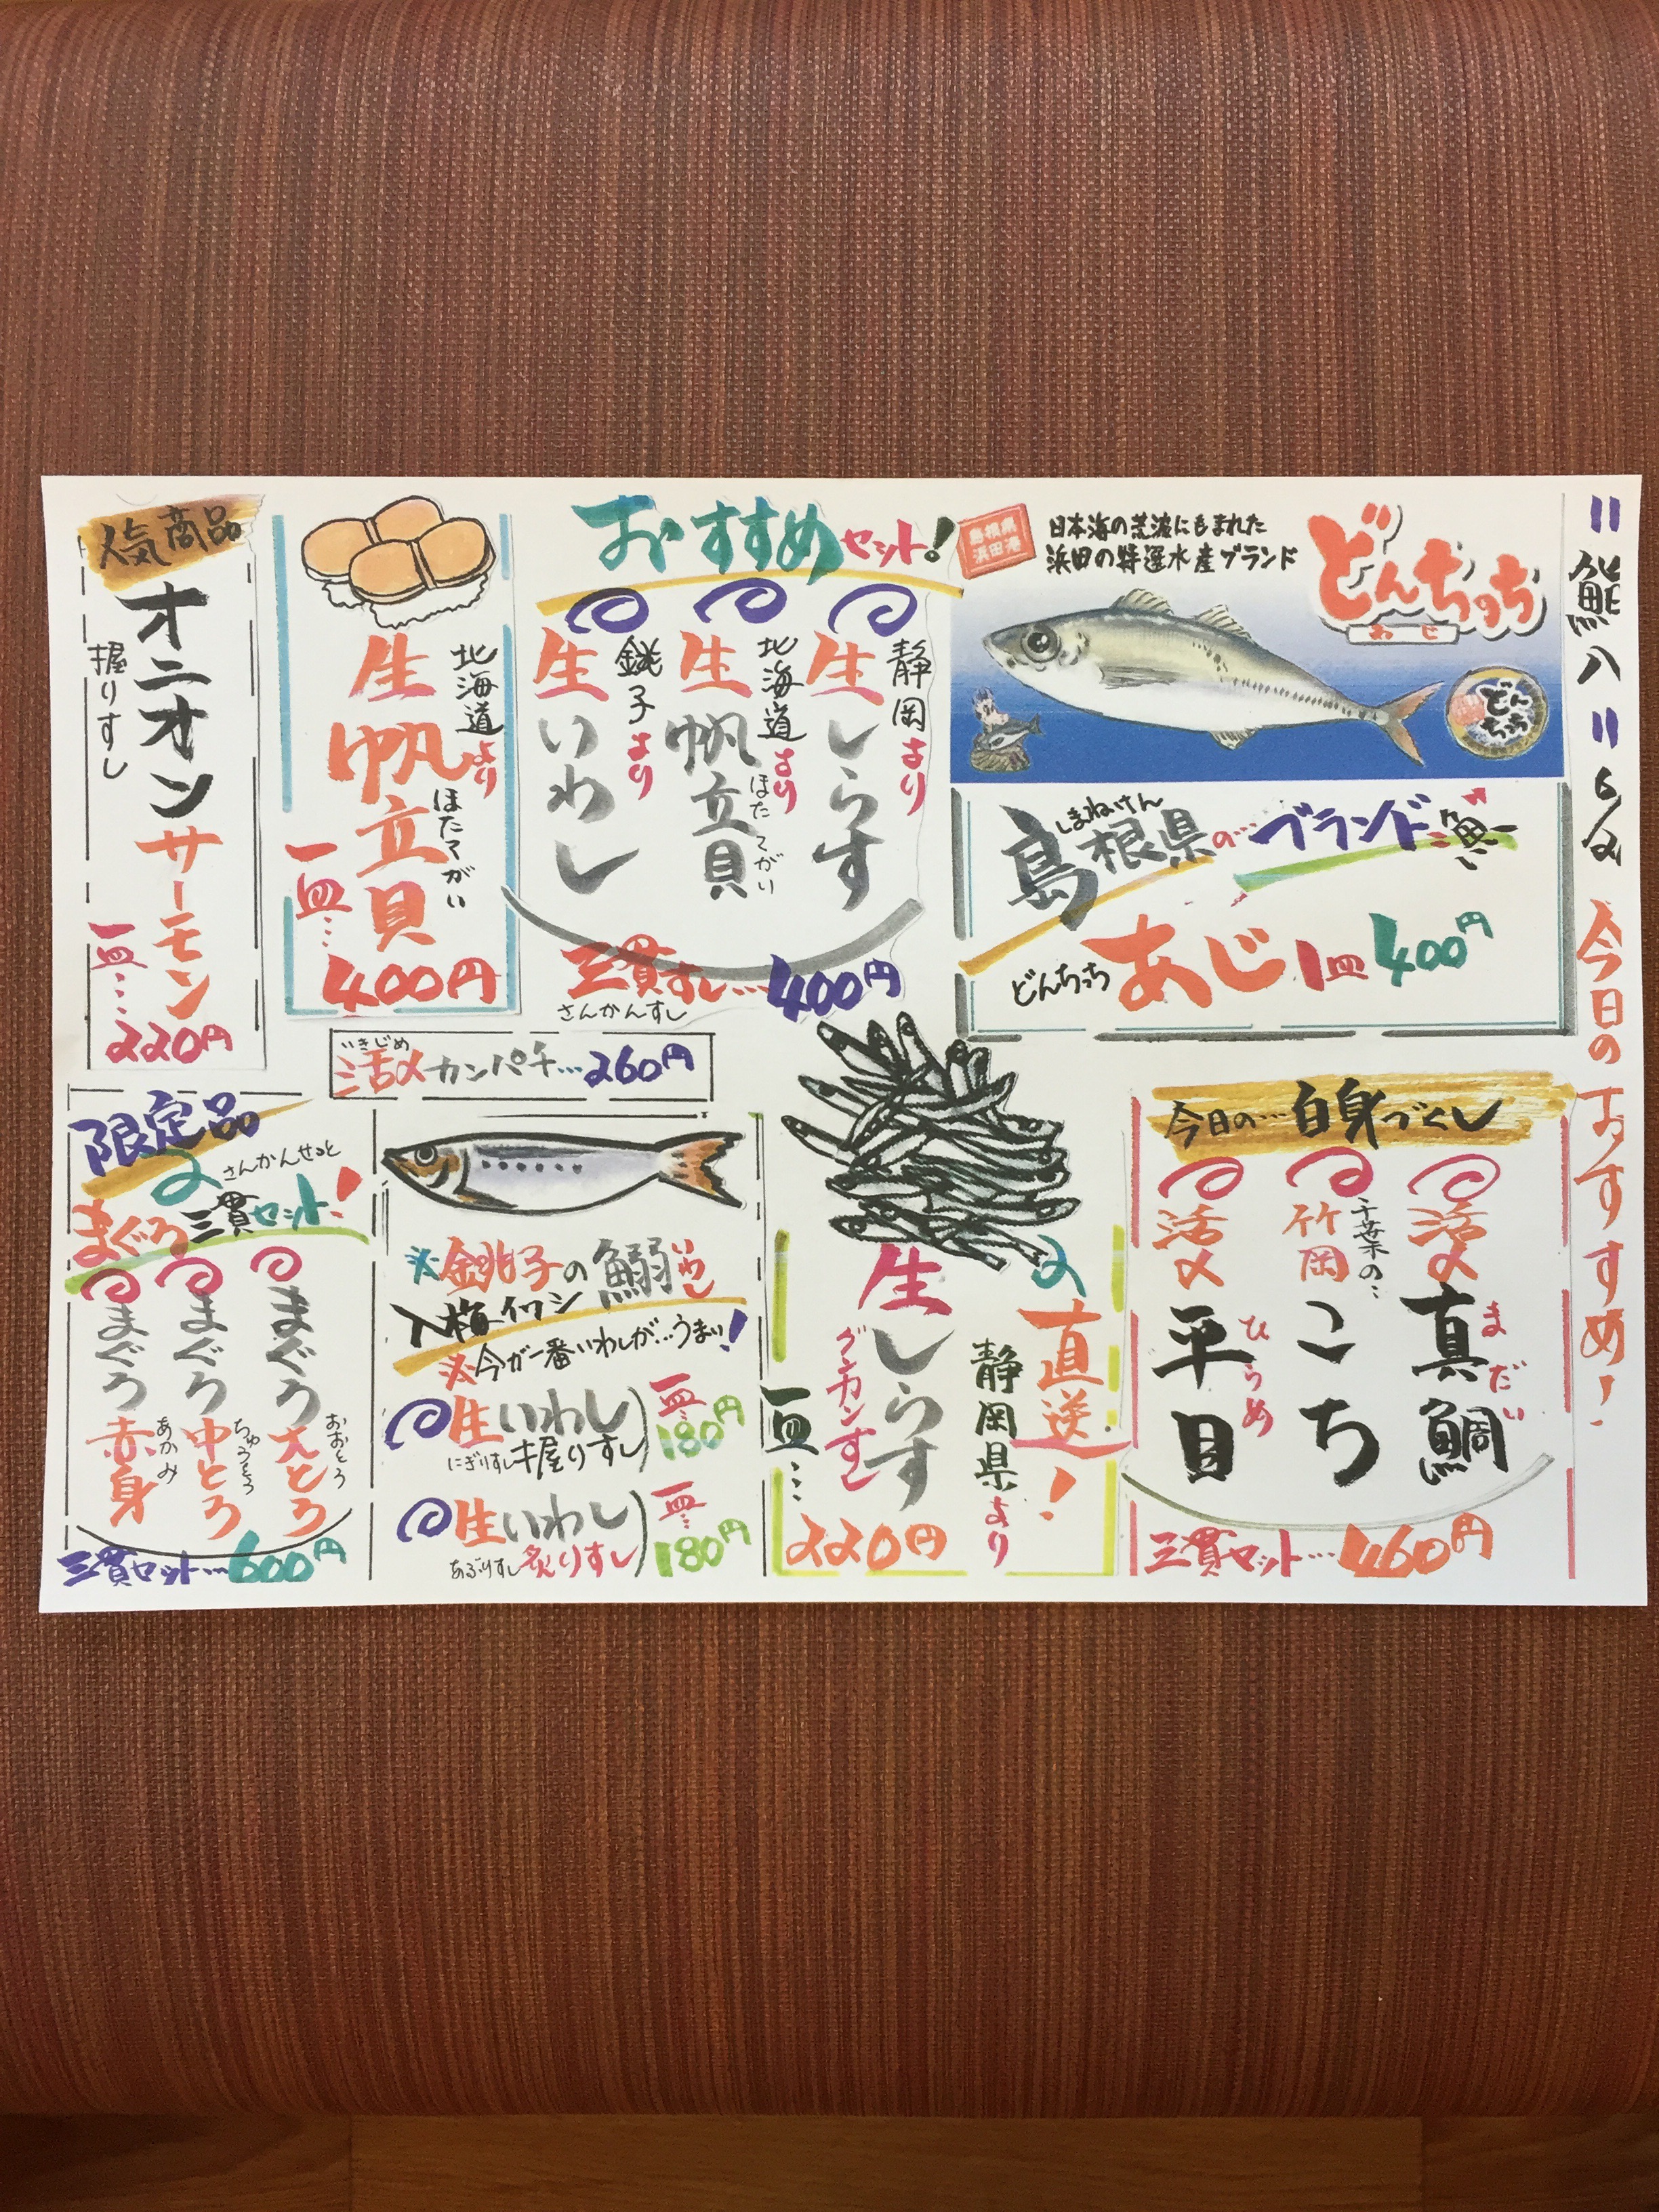 〃鮨八〃 6/2 今日のおすすめ!
島根県
浜田港
日本海の荒波にもまれた
浜田の特選水産ブランド
どんちっち
あじ
どんちっち
しまねけん
島根県の…ブランド魚
どんちっち あじ 1皿 400円
おすすめセット!
静岡より
生しらす
北海道より
生帆立貝
ほたてがい
銚子より
生いわし
三貫すし…400円
さんかんすし
北海道より
生帆立貝
ほたてがい
一皿…
400円
人気商品
オニオンサーモン
握りすし
一皿…
220円
いきじめ
活〆カンパチ…260円
今日の…白身づくし
活〆真鯛
まだい
千葉の…
竹岡こち
活〆平目
ひらめ
三貫セット…460円
直送!
静岡県より
生しらす
グンカンすし
一皿…
220円
※銚子の鰯
いわし
入梅イワシ
※今が一番いわしが…うまい!
生いわし
にぎりすし 握りすし
一皿…
180円
生いわし
あぶりすし 炙りすし
一皿…
180円
限定品
さんかんせっと
まぐろ三貫セット!
まぐろ大とろ
おおとろ
まぐろ中とろ
ちゅうとろ
まぐろ赤身
あかみ
三貫セット…600円